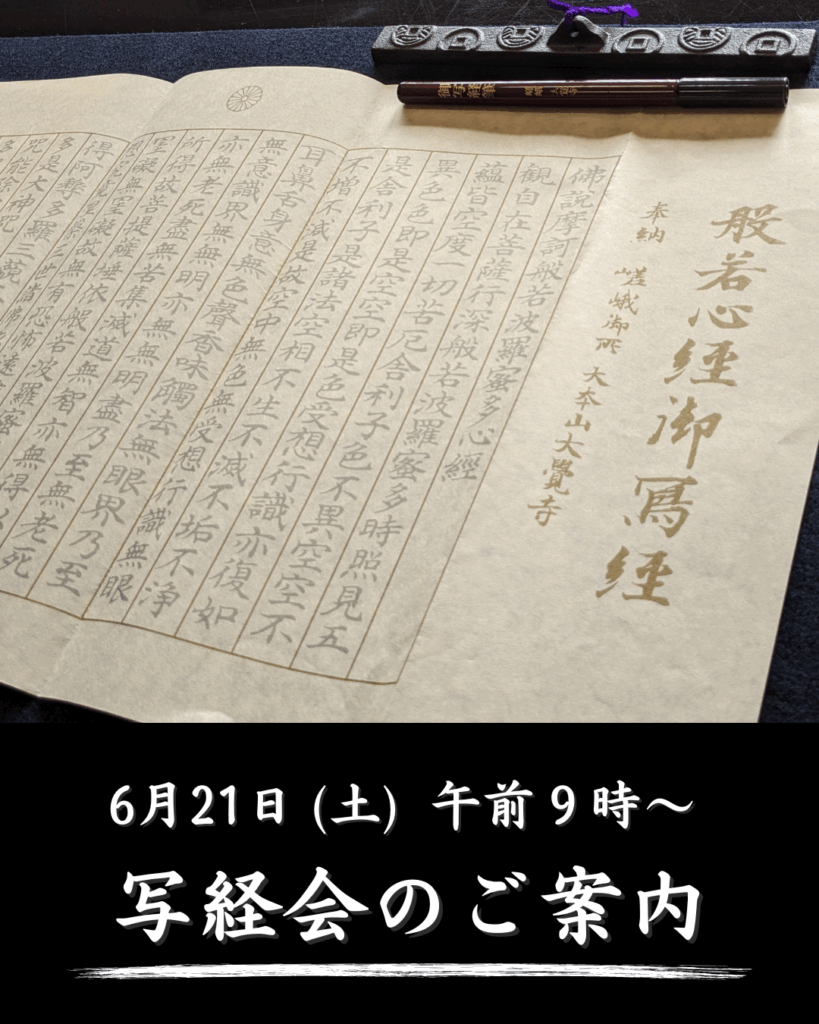 御写経筆
般若心経御寫経
奉納 嵯峨御所 大本山大覺寺
佛說摩訶般若波羅蜜多心經
観自在菩薩行深般若波羅蜜多時照見五
蘊皆空度一切苦厄舍利子色不異空空不
異色色即是空空即是色受想行識亦復如
是舍利子是諸法空相不生不滅不垢不浄
不増不減是故空中無色無受想行識無眼
耳鼻舌身意無色聲香味觸法無眼界乃至
無意識界無無明亦無無明盡乃至無老死
亦無老死盡無苦集滅道無智亦無得以
所得故菩提薩埵依般若波羅蜜
罣礙無罣礙故無有恐怖遠
得阿耨多羅三藐
多是大神咒
咒能除
6月21日 (土) 午前９時～
写経会のご案内